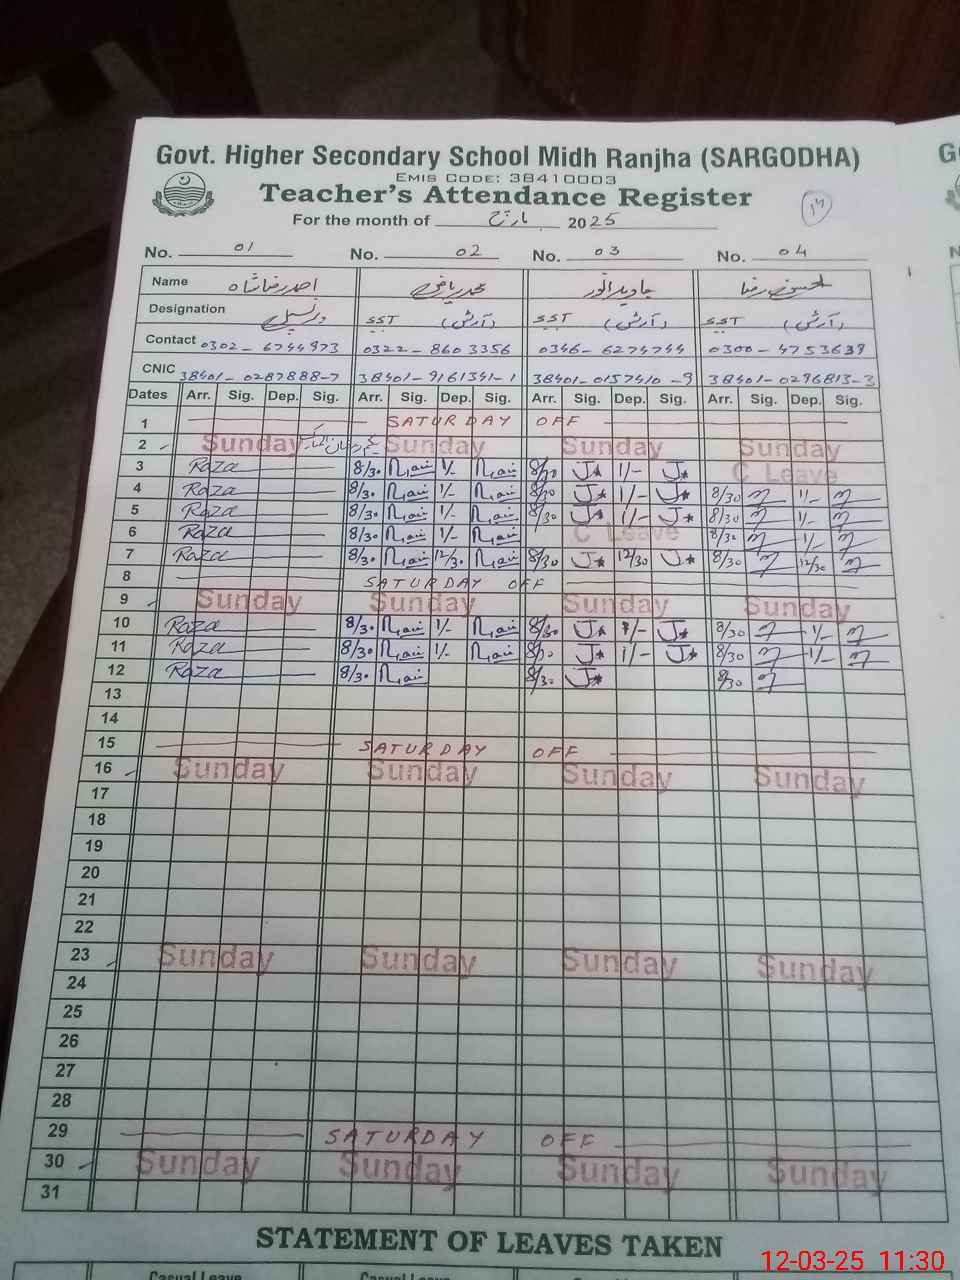 Govt. Higher Secondary School Midh Ranjha (SARGODHA)
EMIS CODE: 38410003
Teacher's Attendance Register
For the month of مارچ 2025
No. 01 No. 02 No. 03 No. 04
Name احمد رضا شاہ محمد ریاض جاوید انور رضا
Designation پرنسپل SST (آرٹس) SST (آرٹس) SST (آرٹس)
Contact 0302-6744973 0322-8603356 0346-6274744 0300-4753639
CNIC 38401-0287888-7 38401-9161341-1 38401-0157410-9 38401-0296813-3
Dates Arr. Sig. Dep. Sig. Arr. Sig. Dep. Sig. Arr. Sig. Dep. Sig. Arr. Sig. Dep. Sig.
1 SATURDAY OFF
2 Sunday Sunday Sunday Sunday
3 Raza 8/30 1/- 8/30 1/- C Leave
4 Raza 8/30 1/- 8/30 1/- 8/30 1/-
5 Raza 8/30 1/- 8/30 1/- 8/30 1/-
6 Raza 8/30 1/- C Leave 8/30 1/-
7 Raza 8/30 12/30 8/30 12/30 8/30 12/30
8 SATURDAY OFF
9 Sunday Sunday Sunday Sunday
10 Raza 8/30 1/- 8/30 1/- 8/30 1/-
11 Raza 8/30 1/- 8/30 1/- 8/30 1/-
12 Raza 8/30 8/30 8/30
13
14
15 SATURDAY OFF
16 Sunday Sunday Sunday Sunday
17
18
19
20
21
22
23 Sunday Sunday Sunday Sunday
24
25
26
27
28
29 SATURDAY OFF
30 Sunday Sunday Sunday Sunday
31
STATEMENT OF LEAVES TAKEN
12-03-25 11:30
Casual Leave Casual Leave